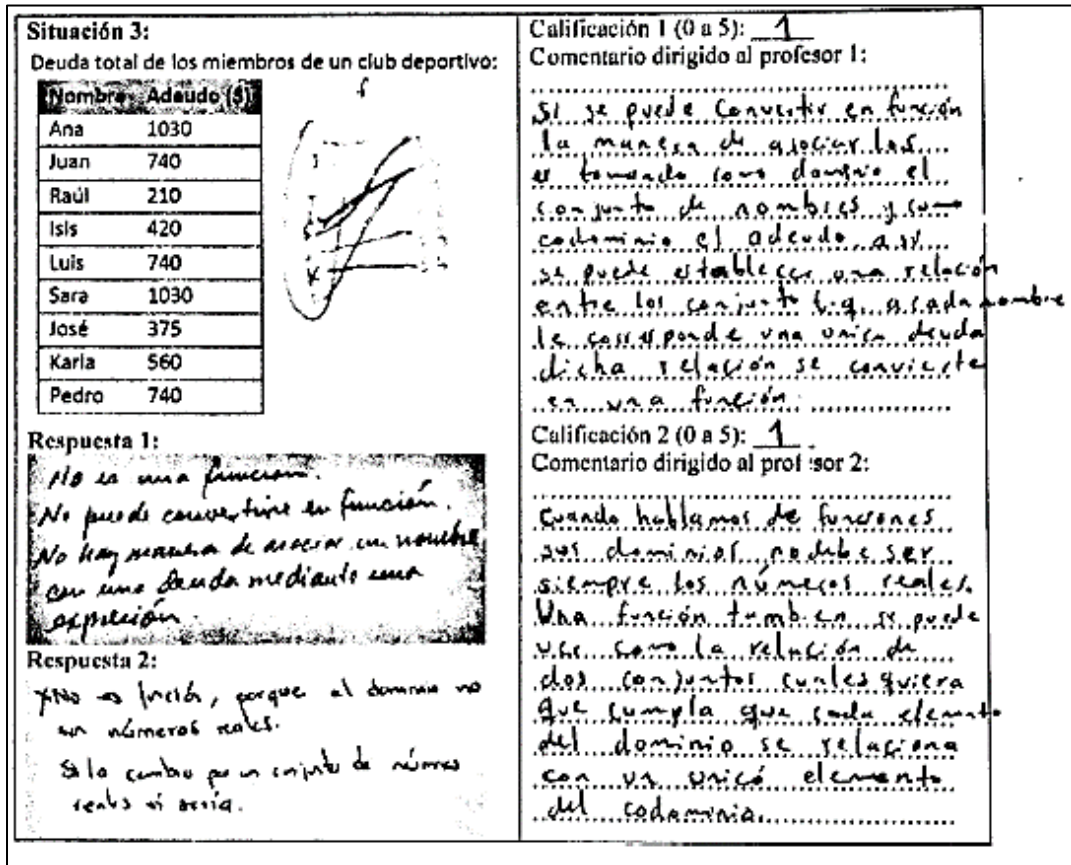 Situación 3:
Deuda total de los miembros de un club deportivo:
Nombre Adeudo ($)
Ana 1030
Juan 740
Raúl 210
Isis 420
Luis 740
Sara 1030
José 375
Karla 560
Pedro 740
f
Respuesta 1:
No es una función.
No puede convertirse en función.
No hay manera de asociar un nombre
con una deuda mediante una
expreción
Respuesta 2:
No es función, porque el dominio no
son números reales.
Si lo cambio por un conjunto de números
reales si sería.
Calificación 1 (0 a 5): 1
Comentario dirigido al profesor 1:
Si se puede convertir en función
la manera de asociarlas
es tomando como dominio el
conjunto de nombres y como
codominio el adeudo así
se puede establecer una relación
entre los conjunto t.q. a cada nombre
le corresponde una unica deuda
dicha relación se convierte
en una función.
Calificación 2 (0 a 5): 1
Comentario dirigido al profesor 2:
Cuando hablamos de funciones
sus dominios no debe ser
siempre los números reales.
Una función tambien se puede
ver como la relación de
dos conjuntos cualesquiera
que cumpla que cada elemento
del dominio se relaciona
con un unicó elemento
del codominio.